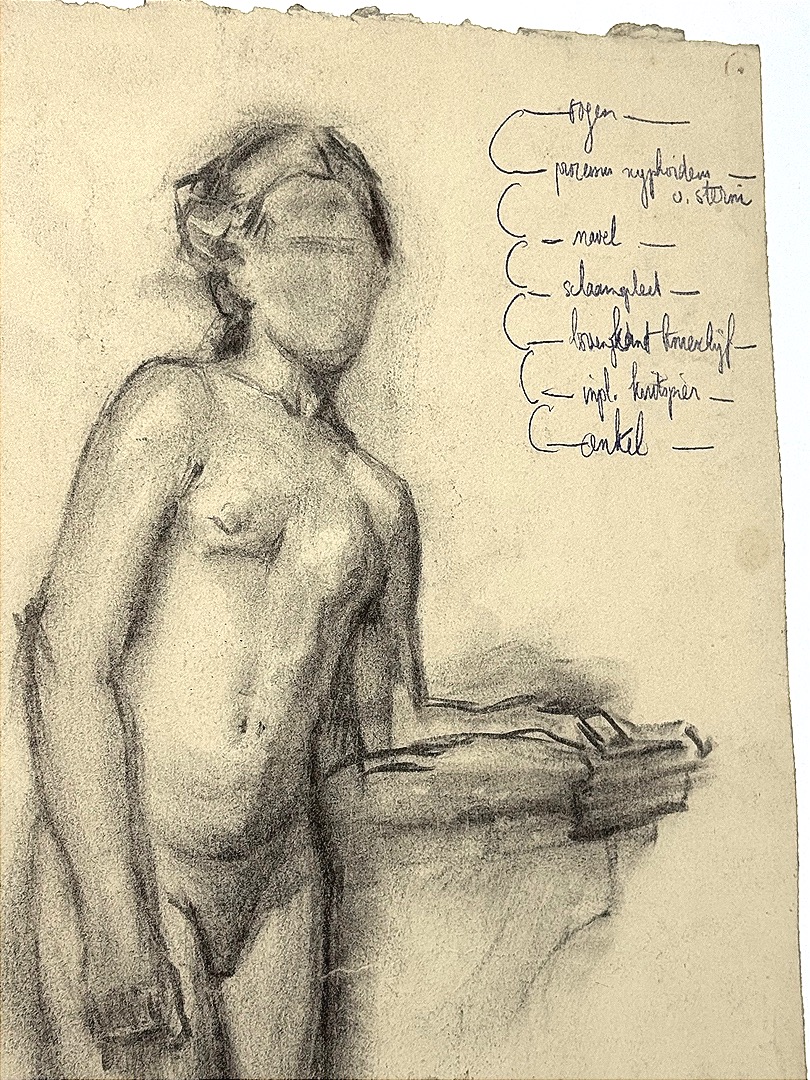 ogen
processus xyphoideus
v. sterni
navel
schaamspleet
bovenkant knieschijf
inpl. kuitspier
enkel